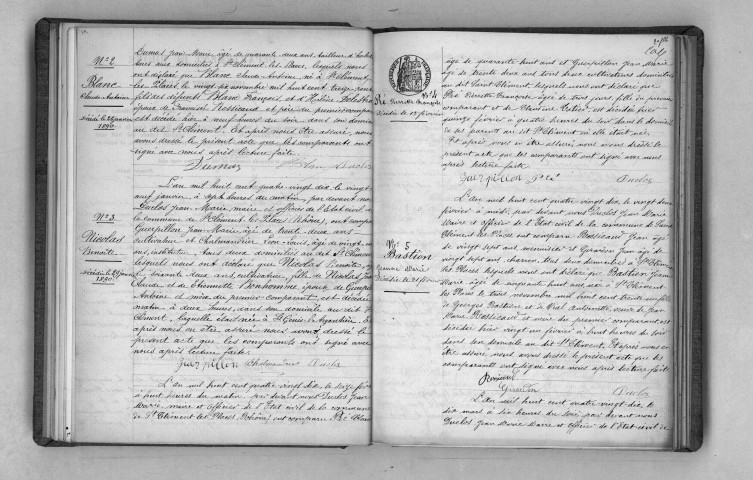 N° 2
Blanc
Claude Antoine
décédé le 28 janvier
1890
Dumas Jean Marie, âgé de quarante deux ans, tailleur d'habits
tous deux domiciliés à St Clément les Places, lesquels nous
ont déclaré que Blanc Claude Antoine, né à St Clément
les Places le vingt
fils de défunt Blanc François, et d'
époux de et père du premier comparant
est décédé hier à neuf heures du soir dans son domicile
au dit St Clément. Et après nous être assuré, nous
avons dressé le présent acte que les comparants ont
signé avec nous après lecture faite.
Dumas Blanc Duclos
N° 3
Nicolas
Benoîte
décédée le 29 janvier
1890
L'an mil huit cent quatre vingt dix le vingt
neuf janvier, à sept heures du matin, par devant nous
Duclos Jean Marie, maire et officier de l'Etat civil de
la commune de St Clément les Places (Rhône), ont comparu
Guerpillon Jean Marie, âgé de trente deux ans
cultivateur et Chalmandrier Léon Louis, âgé de vingt
ans, instituteur, tous deux domiciliés au dit St Clément
lesquels nous ont déclaré que Nicolas Benoîte,
de soixante deux ans, cultivatrice, fille de Nicolas Jean
Claude et de Etiennette Bonhomme épouse de Guerpillon
Antoine et mère du premier comparant, est décédée
matin à deux heures, dans son domicile au dit St
Clément, laquelle était née à St Genis l'Argentière. Et
après nous en être assuré nous avons dressé le
présent acte que les comparants ont signé avec
nous après lecture faite.
Guerpillon Chalmandrier Duclos
L'an mil huit cent quatre vingt dix, le seize février
à huit heures du matin, par devant nous Duclos Jean
Marie, maire et officier de l'Etat civil de la commune
de St Clément les Places (Rhône) ont comparu Ré Blanc
N° 4
Ré Pierrette Françoise
décédée le 15 février
âgé de quarante huit ans et Guerpillon Jean Marie
âgé de trente deux ans tous deux cultivateurs domiciliés
au dit Saint Clément, lesquels nous ont déclaré que
Ré Pierrette Françoise âgée de trois jours, fille du premier
comparant et de Clémence est décédée hier
quinze février à quatre heures du soir dans le domicile
de ses parents au dit St Clément où elle était née.
Et après nous en être assuré nous avons dressé le
présent acte que les comparants ont signé avec nous
après lecture faite.
Guerpillon Ré Duclos
N° 5
Bastion
Jeanne Marie
décédée le 21 février
L'an mil huit cent quatre vingt dix, le vingt deux
février à midi, par devant nous Duclos Jean Marie
Maire et officier de l'Etat civil de la commune de Saint
Clément les Places ont comparu Jean âgé
de vingt sept ans, menuisier et âgé de
vingt sept ans, charron, tous deux domiciliés à St Clément
les Places lesquels nous ont déclaré que Bastion Jeanne
Marie âgée de cinquante huit ans née à St Clément
les Places le trois novembre mil huit cent trente un fille
de Georges Bastion et de Antoinette, veuve de Jean
Marie et mère du premier comparant est
décédée hier vingt un février à huit heures du soir
dans son domicile au dit St Clément. Et après nous en
être assuré, nous avons dressé le présent acte que les
comparants ont signé avec nous après lecture faite.
Duclos
L'an mil huit cent quatre vingt dix, le
dix mars à dix heures du soir par devant nous
Duclos Jean Marie Maire et officier de l'Etat civil de